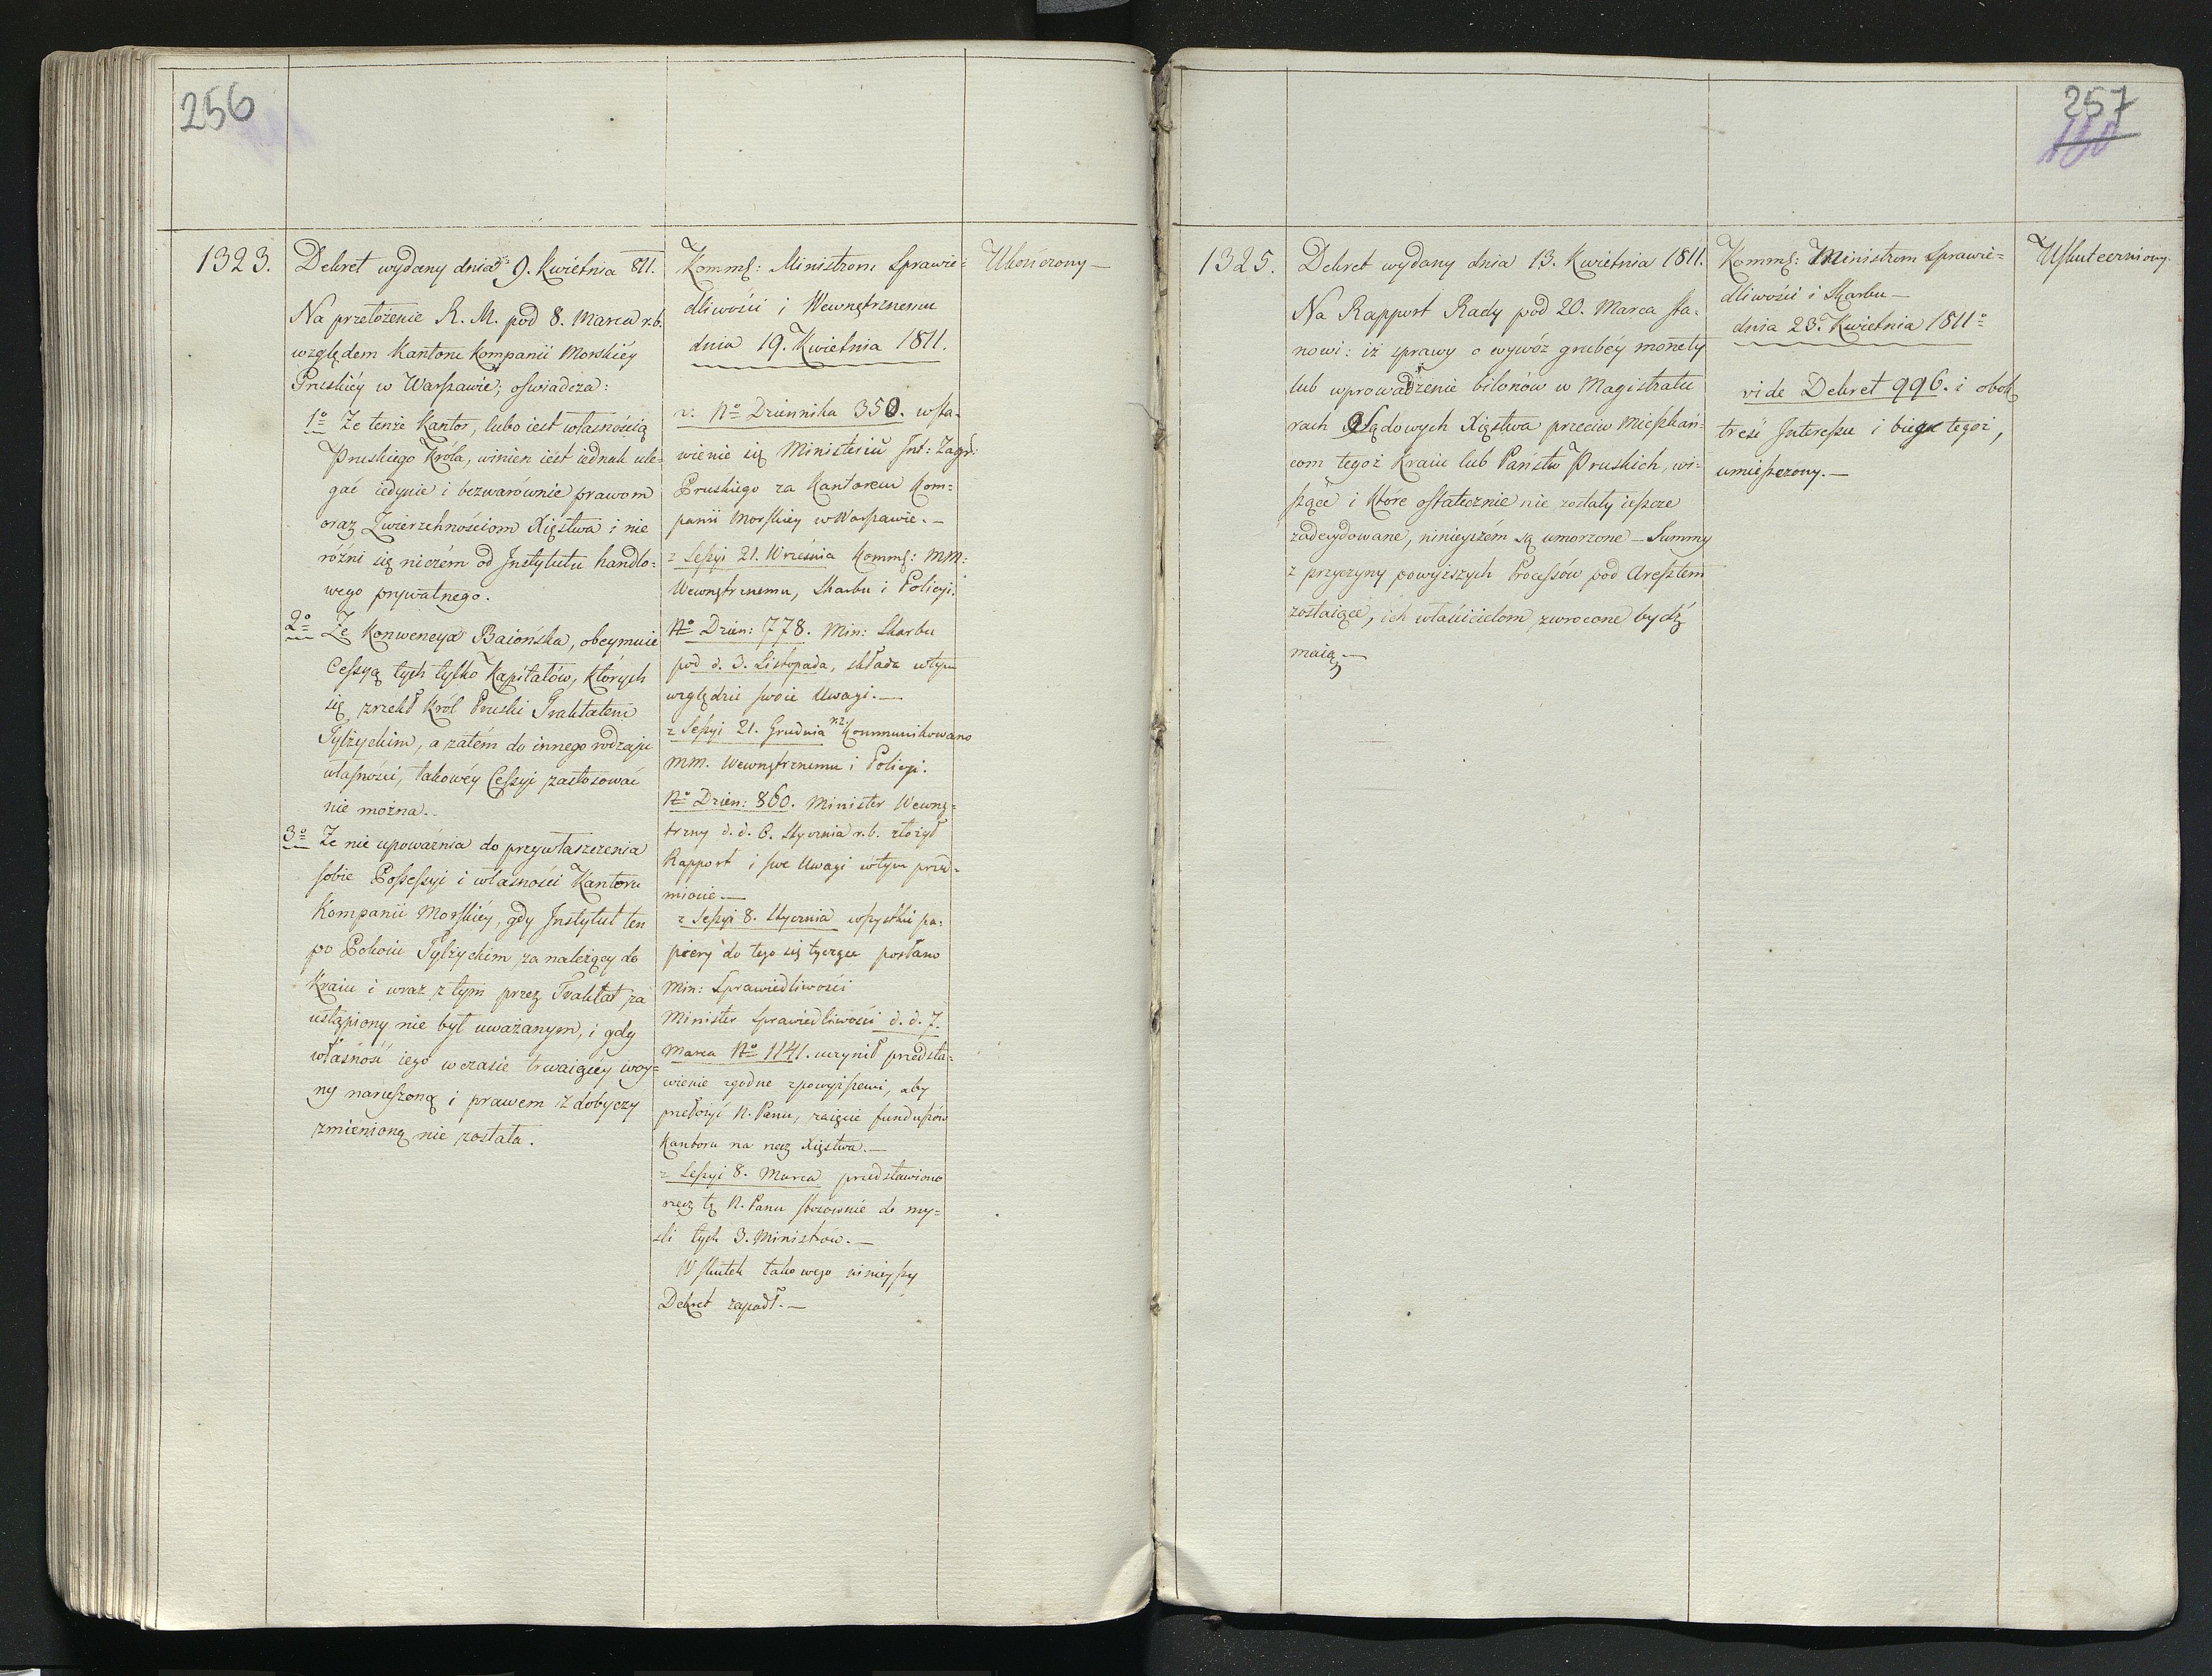 256
1323.
Dekret wydany dnia 9. Kwietnia 811.
Na przełożenie R. M. pod 8. Marca r.b.
względem Kantoru Kompanii Morskiéy
Pruskiéy w Warszawie; oświadcza:
1o Że tenże Kantor, lubo iest własnością
Pruskiego Króla, winien iest iednak ule-
gać iedynie i bezwarównie prawom
oraz Zwierzchnościom Xięstwa i nie
różni się niczém od Instytutu handlo-
wego prywatnego.
2o Że Konwencya Baiońska, obeymuie
Cessyą tych tylko Kapitałów, których
się zrzekł Król Pruski Traktatem
Tylżyckim, a zatém do innego rodzaju
własności, takowéy Cessyi zastosować
nie można.
3o Że nie upoważnia do przywłaszczenia
sobie Possessyi i własności Kantoru
Kompanii Morskiéy, gdy Instytut ten
po Pokoiu Tylżyckim za należący do
Kraiu i wraz z tym przez Traktat za
ustąpiony nie był uważanym, i gdy
własność iego w czasie trwaiącéy woy-
ny naruszoną i prawem zdobyczy
zmienioną nie została.
Komms: Ministrom Sprawie-
dliwości i Wewnętrznemu
dnia 19. Kwietnia 1811.
v: No Dziennika 350. wsta-
wienie się Ministeriu Int: Zagr:
Pruskiego za Kantorem Kom-
panii Morskiey w Warszawie. —
z Sessyi 21. Września Komms: MM:
Wewnętrznemu, Skarbu i Policyi.
No Dzien: 778. Min: Skarbu
pod d. 3. Listopada, składa w tym
względzie swoie Uwagi. —
z Sessyi 21. Grudnia Kommunikowano
MM. Wewnętrznemu i Policyi.
No Dzien: 860. Minister Wewnę-
trzny d. d. 6. Stycznia r. b. złożył
Rapport i swe Uwagi w tym przed-
miocie —
z Sessyi 8. Stycznia wszystkie pa-
piery do tego się tyczące posłano
Min: Sprawiedliwości
Minister Sprawiedliwości d. d. 7.
Marca No 1141. uczynił przedsta-
wienie zgodne z powyższemi, aby
przełożyć N. Panu, zaięcie funduszów
Kantoru na rzecz Xięstwa. —
z Sessyi 8. Marca przedstawiono
rzecz tę N. Panu stosownie do my-
śli tych 3. Ministrów. —
W skutek takowego ninieyszy
Dekret zapadł. —
Ukończony —
257
180
1325.
Dekret wydany dnia 13. Kwietnia 1811.
Na Rapport Rady pod 20. Marca sta-
nowi: iż sprawy o wywóz grubéy monety
lub wprowadzenie bilonów w Magistratu
rach Sądowych Xięstwa przeciw Mieszkań-
com tegoż Kraiu lub Państw Pruskich, wi-
szące i które ostatecznie nie zostały ieszcze
zadecydowane, ninieyszém są umorzone — Summy
z przyczyny powyższych Processów pod Aresztem
zostaiące, ich właścicielom zwrocone bydź
maią —
Komms: Ministrom Sprawie-
dliwości i Skarbu —
dnia 23. Kwietnia 1811o
vide Dekret 996. i obok
treść Interessu i biegu tegoż,
umieszczony. —
Uskuteczniony.